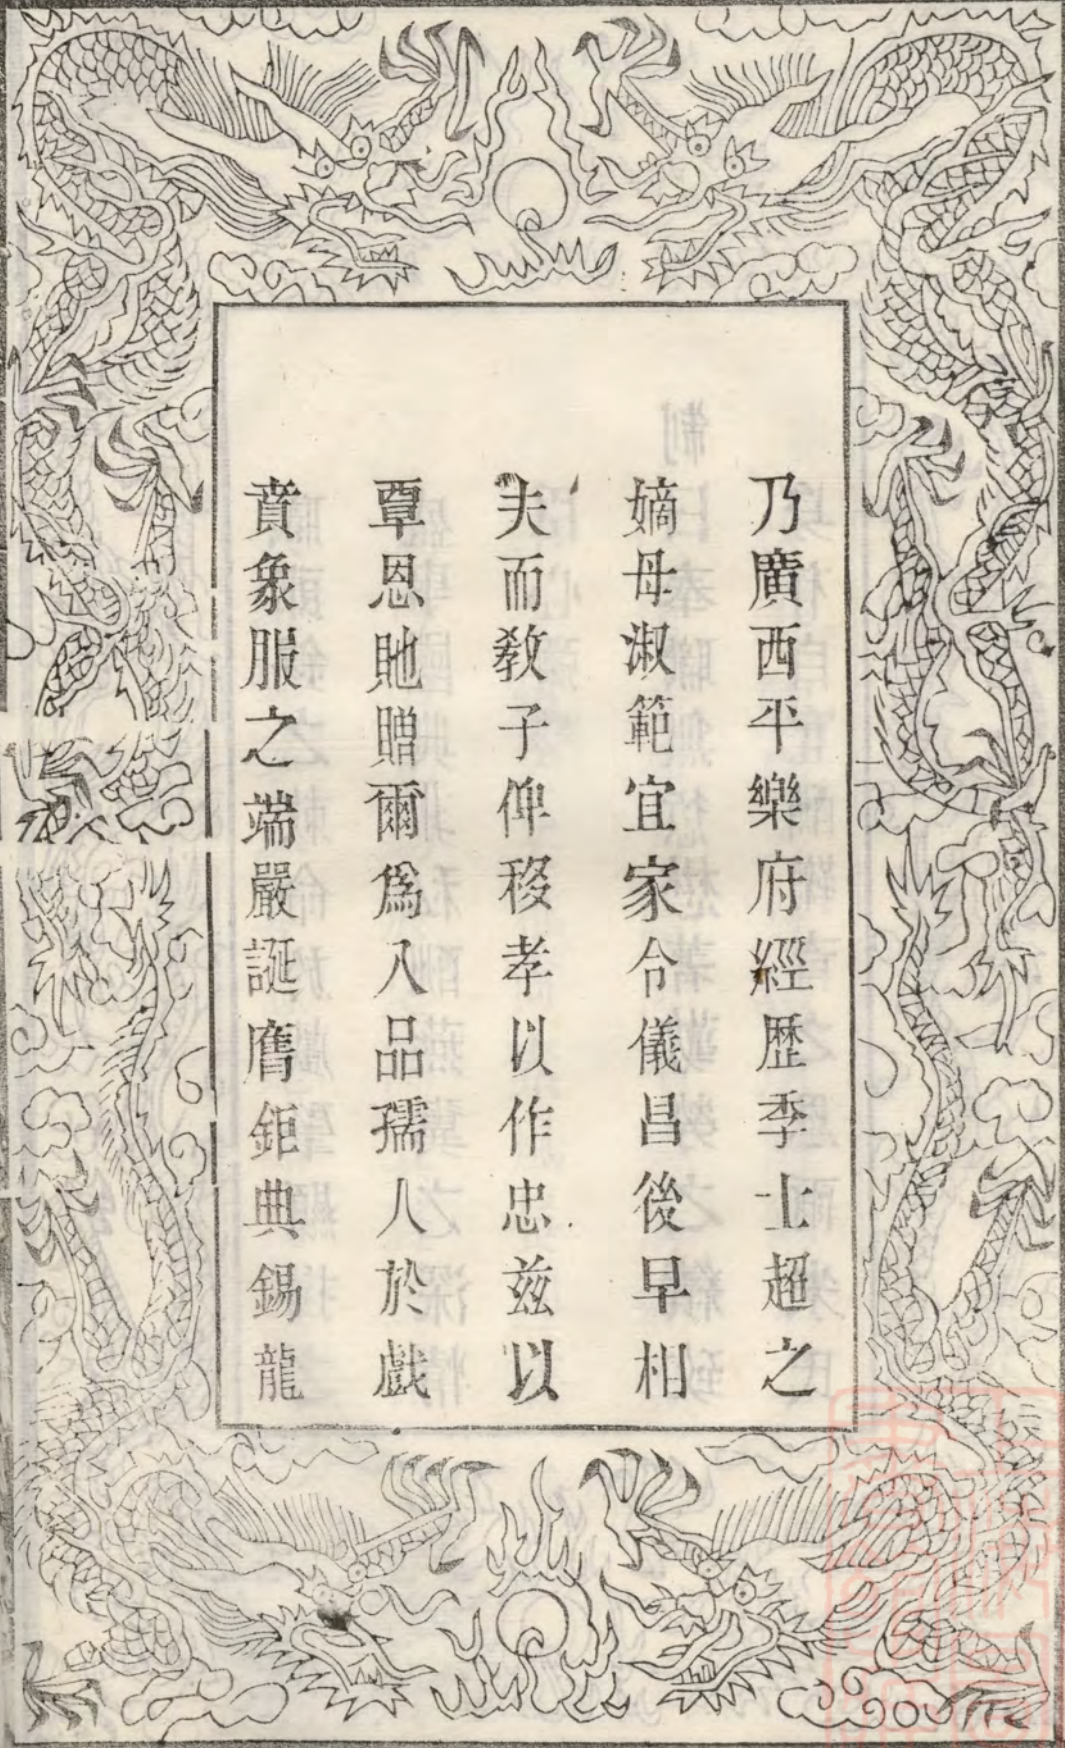 乃廣西平樂府經歷季士超之
嫡母淑範宜家令儀昌後早相
夫而教子俾移孝以作忠茲以
覃恩貤贈爾為八品孺人於戲
賁象服之端嚴誕膺鉅典錫龍